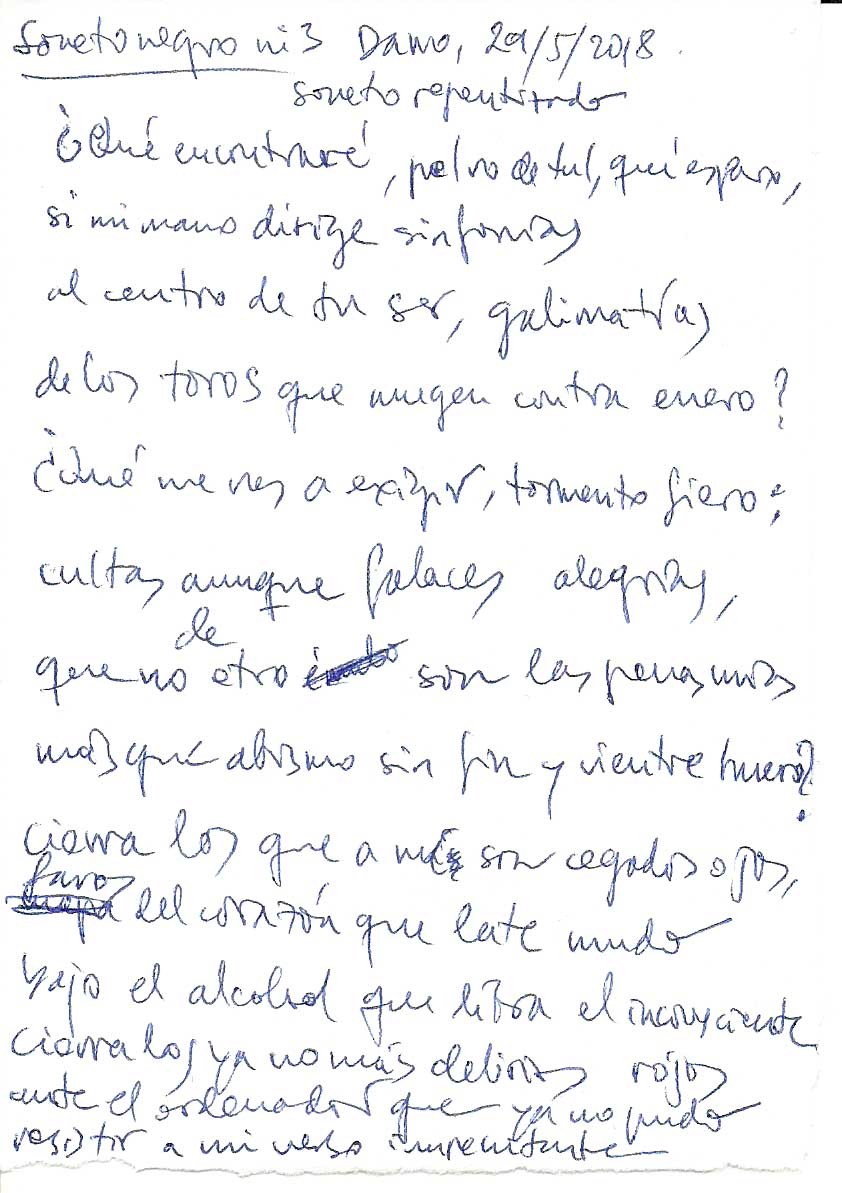 Soneto negro nº 3 Damo, 29/5/2018.
soneto repentizado
¿Qué encontraré, polvo de tul, qué espero,
si mi mano dirige sinfonías
al centro de tu ser, galimatías
de los toros que mugen contra enero?
¿Qué me ves a exigir, tormento fiero;
cultas aunque falaces alegrías,
de
que no otro son las penas mías
más que abismo sin fin y vientre huero?
cierra los que a mis son cegados ojos,
faros
del corazón que late mudo
bajo el alcohol que libra el inconsciente
cierra los ya no más delirios rojos
ante el ordenador que ya no pudo
resistir a mi verso impenitente